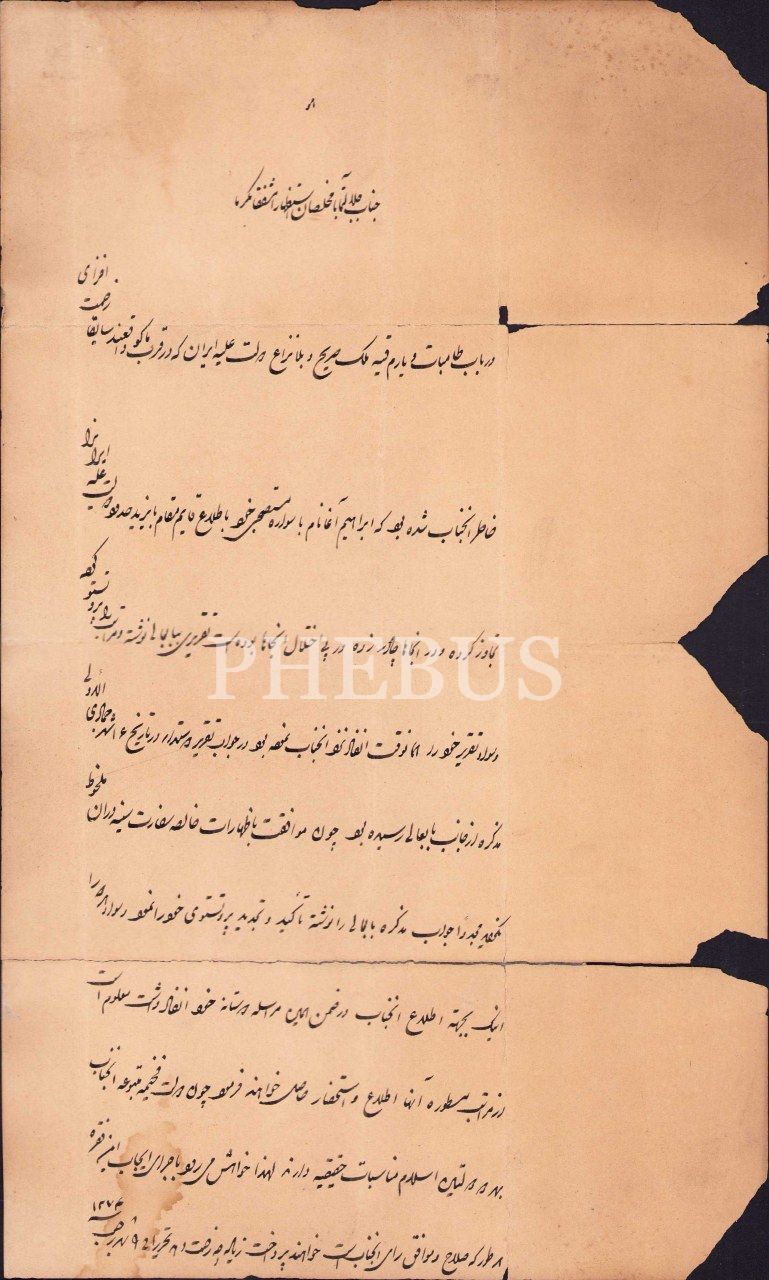 جناب جلالتمآبا مخلصان استظهارا مشفقا مکرما
در باب طلبات و یارم قیه ملک صریح و بلانزاع دولت علیه ایران که در قرب ماکو واقعند سابقا زحمت افزای
خاطر آنجناب شده بود که ابراهیم آغا نام با سواره مستحفظی خود باطلاع قایم مقام بایزید حدود دولت علیه ایران را
تجاوز کرده و در آنجاها چادر زده در پی اختلال آنجاها بوده است تقریری ببابعالی نوشته و مراتب را پروتستو کرده
و سواد تقریر خود را همانوقت انفاذ نزد آنجناب نموده بود در جواب تقریر دوستدار در تاریخ ۶ شهر جمادی الاولی
مذکره از جانب بابعالی رسیده بود چون موافقت باظهارات خالصه سفارت سنیه در آن ملحوظ
نگردید مجددا جواب مذکره بابعالی را نوشته تأکید و تجدید پروتستوی خود را نمود و سواد را
اینک بجهته اطلاع آنجناب در ضمن همین مراسله دوستانه خود انفاذ داشت معلوم است
از مراتب مسطوره آنها اطلاع و استحضار حاصل خواهند فرمود چون دولت فخیمه متبوعه آنجناب
بهر دو دولتین اسلام مناسبات حقیقیه دارند لهذا خواهش می رود باجرای ایجاب این فقره
هر طور که صلاح و موافق رای آنجناب است خواهند پرداخت زیاده چه زحمت دهد تحریرا فی ۹ شهر رجب سنه ۱۲۷۴
PHEBUS